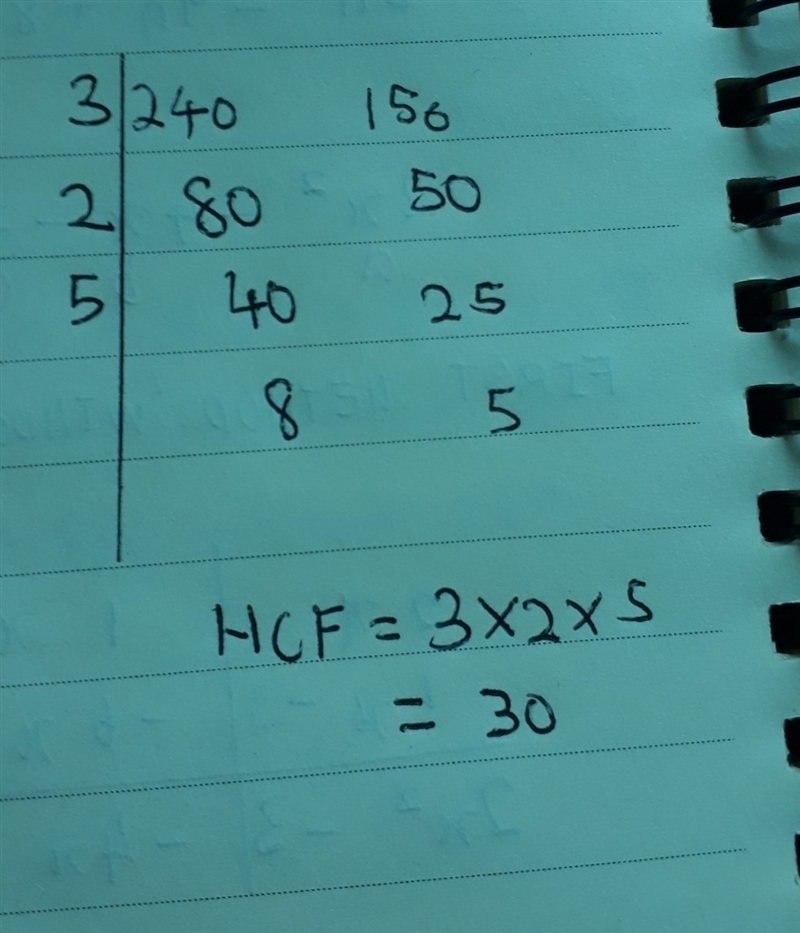 3 240 150
2 80 50
5 40 25
8 5
HCF = 3×2×5
= 30